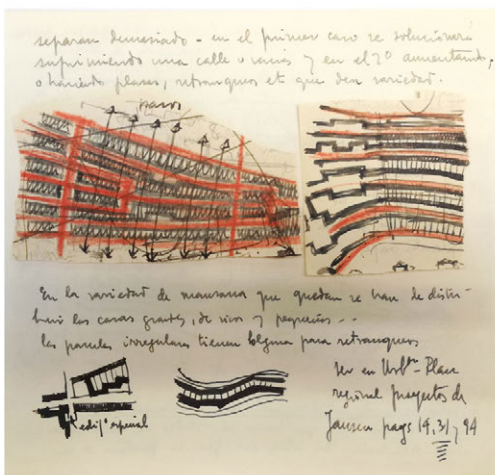 separan demasiado - en el primer caso se solucionará
suprimiendo una calle o varias y en el 2º aumentando,
o haciendo plazas, retranqueos et que den variedad.
pasos
En la variedad de manzana que quedan se han de distri-
buir las casas grandes, de vivos y pequeñas --
las parcelas irregulares tienen para retranqueos
edifº especial
Ver en Urbtn - Plan
regional proyectos de
Jansen pags 19, 31, y 94